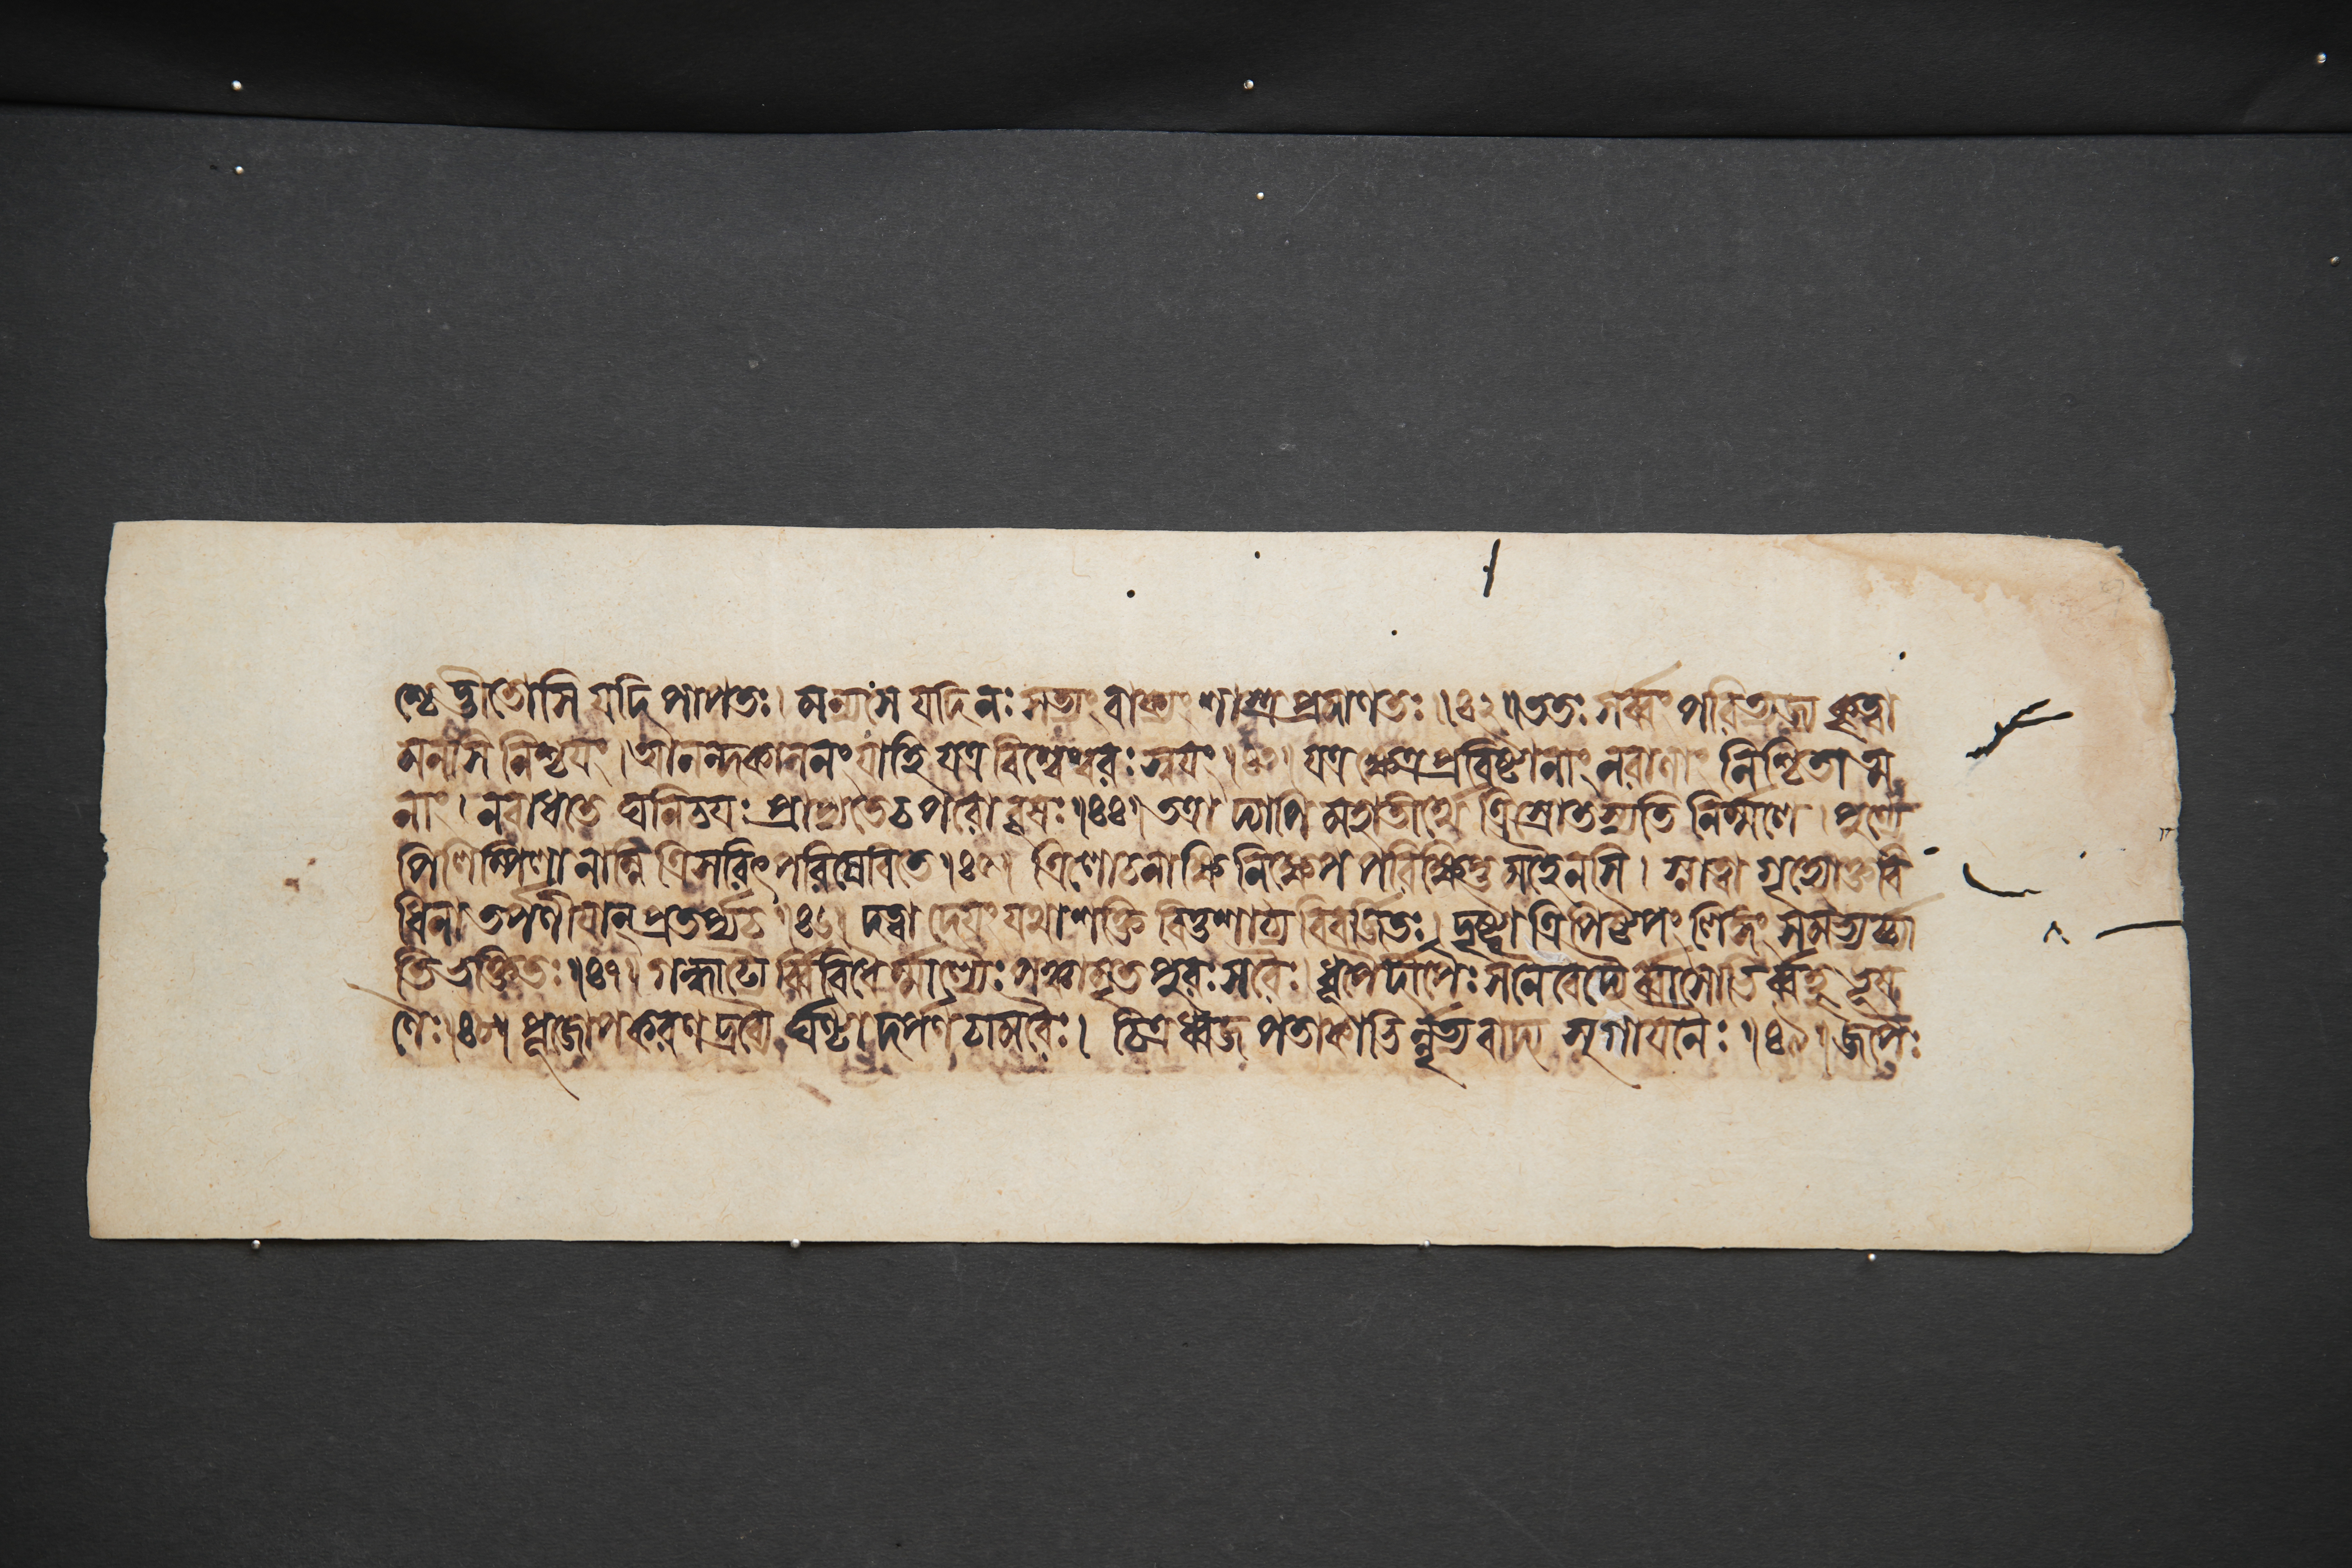 শ্চেদ্ভীতোসি যদি পাপতঃ। মন্যসে যদি নঃ সত্যং বাক্যং শাস্ত্রপ্রমাণতঃ॥৪২॥ততঃ সর্ব্বং পরিত্যজ্য কৃত্বা
মনসি নিশ্চয়ং।আনন্দকাননং যাহি যত্র বিশ্বেশ্বরঃ স্বয়ং॥৪৩॥ যত্র ক্ষেত্রপ্রবিষ্টানাং নরাণাং নিশ্চিতাত্ম
নাং। নবাধতে ঘনিচয়ঃ প্রাপ্যতে চ পরো বৃষঃ॥৪৪॥তত্রা দ্যাপি মহাতীর্থে ত্রিস্রোতস্যতি নির্ম্মলে। পুণ্যে
পিলিপ্পিলা নাম্নি ত্রিসরিৎ পরিসেবিতে॥৪৫॥ ত্রিলোচনাক্ষি নিক্ষেপ পরিক্ষিপ্ত মহৈনসি। স্নাত্বা গৃহ্যোক্তবি
ধিনা তর্পণীয়ান্ প্রতর্প্য চ॥৪৬॥ দত্বা দেয়ং যথাশক্তি বিত্তশাঠ্য বিবর্জিতঃ। দৃষ্ট্বা ত্রিপিষ্টপং লিঙ্গং সমভ্যর্চ্যা
তি ভক্তিতঃ॥৪৭॥ গন্ধাদ্যৈর্ব্বিবিধৈর্ম্মাল্যৈঃ পঞ্চামৃত পুরঃসরৈঃ। ধূপৈর্দীপৈঃ সনৈবেদ্যৈর্ব্বাসোভির্ব্বহু ভূষ
ণৈঃ॥৪৮॥ পূজোপকরণদ্রব্যৈ র্ঘণ্টা দর্পণ চামরৈঃ। চিত্রধ্বজ পতাকাভি র্নৃত্যবাদ্য সুগায়নৈঃ॥৪৯॥ জপৈঃ